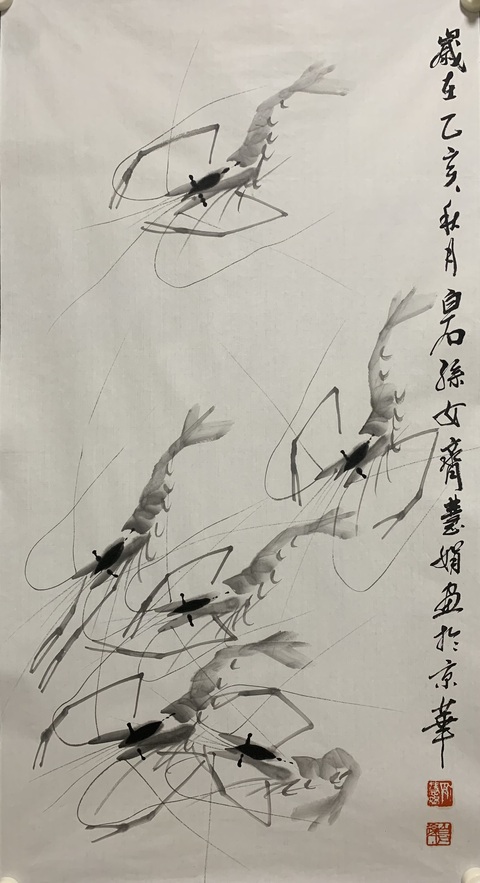 歲在乙亥秋月白石孫女齊慧娟画於京華